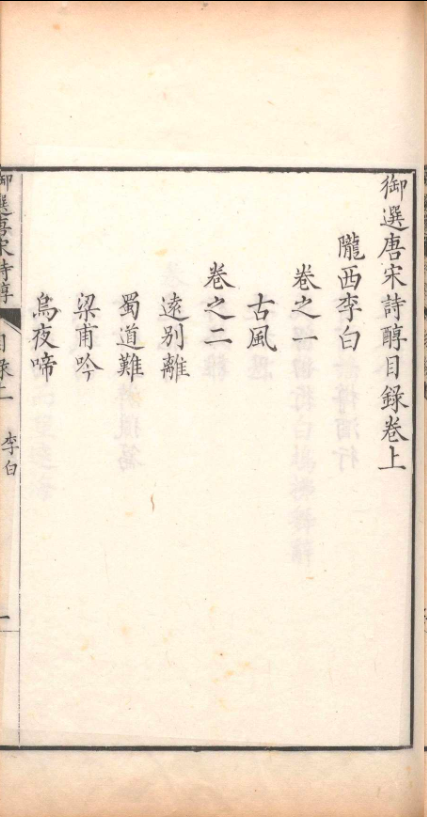 御選唐宋詩醇目録卷上
隴西李白
卷之一
古風
卷之二
遠別離
蜀道難
梁甫吟
烏夜啼
御選唐宋詩醇
目録上
李白
一